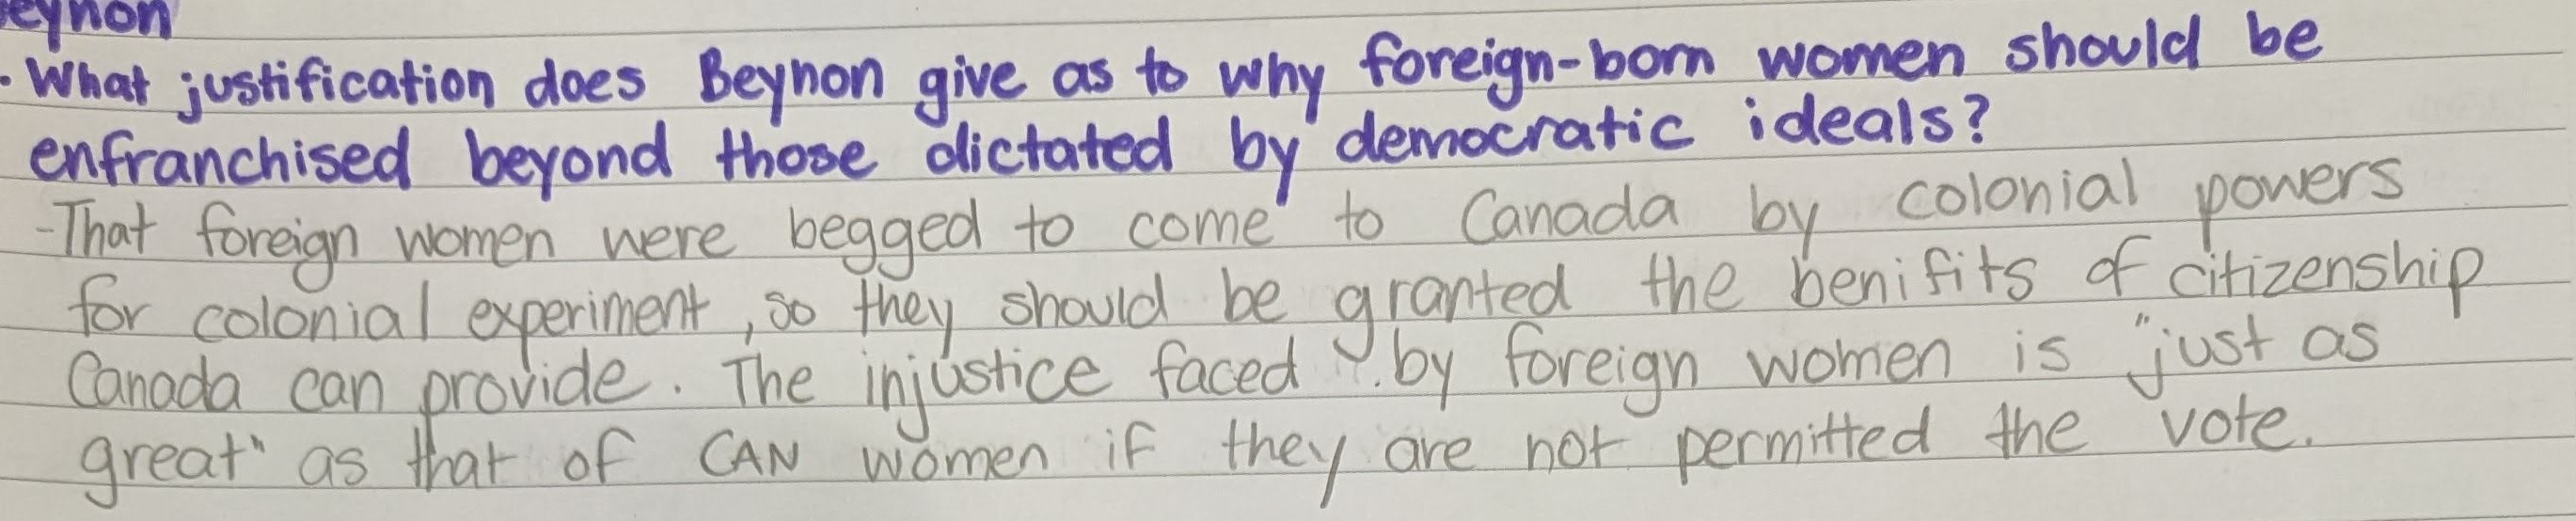 eynon
· What justification does Beynon give as to why foreign-born women should be
enfranchised beyond those dictated by democratic ideals?
-That foreign women were begged to come to Canada by colonial powers
for colonial experiment, so they should be granted the benifits of citizenship
Canada can provide. The injustice faced by foreign women is "just as
great" as that of CAN women if they are not permitted the vote.